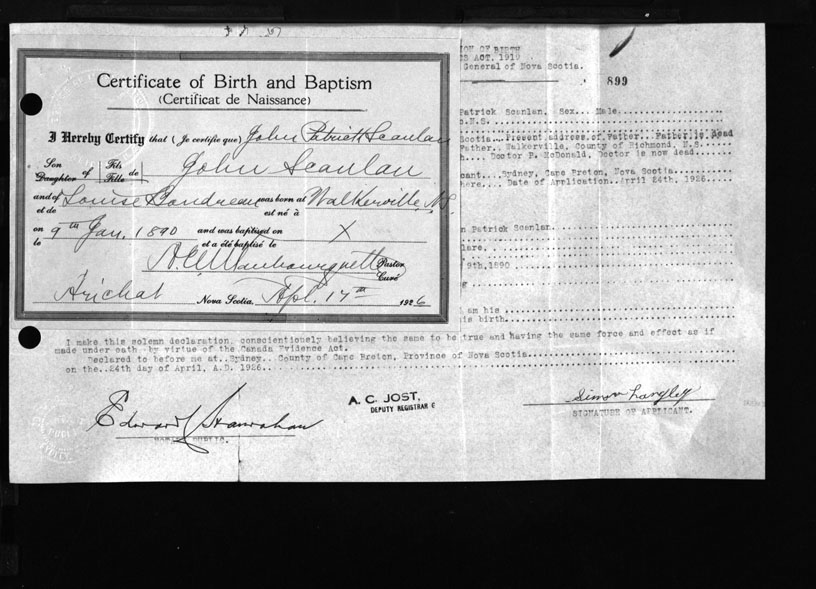 ION OF BIRTH
S ACT, 1919
General of Nova Scotia.
899
Certificate of Birth and Baptism
(Certificat de Naissance)
I Hereby Certify that (Je certifie que) John Patrick Scanlan
Son Daughter of Fils Fille de John Scanlan
and of et de Louise Boudreau was born at est né à Walkerville, N.S.
on le 9th Jan. 1890 and was baptised on et a été baptisé le X
Pastor Curé
Arichat Nova Scotia, Apl. 17th 1926
Patrick Scanlan, Sex.. Male
N.S.
Scotia. Present address of Father. Father is dead
Father.. Walkerville, County of Richmond, N.S.
Doctor P. McDonald, Doctor is now dead
cant.. Sydney, Cape Breton, Nova Scotia
here... Date of Application..April 24th, 1926
n Patrick Scanlan
lare,
9th,1890
I am his
is birth.
I make this solemn declaration, conscientiously believing the same to be true and having the same force and effect as if
made under oath by virtue of the Canada Evidence Act.
Declared to before me at..Sydney.. County of Cape Breton, Province of Nova Scotia
on the..24th day of April, A.D. 1926
Edward Hanrahan
A. C. JOST,
DEPUTY REGISTRAR G
Simon Langley
SIGNATURE OF APPLICANT.